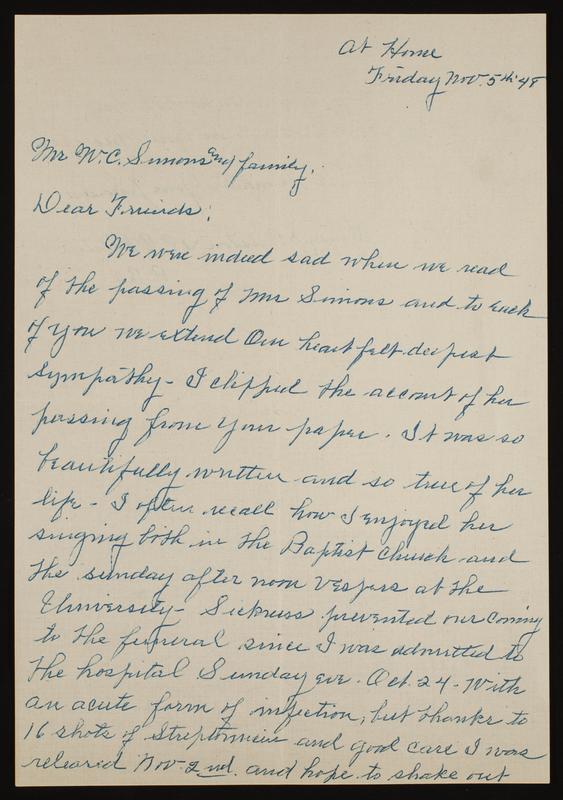 At Home
Friday Nov. 5th 48
Mr W. C. Simons and family,
Dear Friends;
We were indeed sad when we read
of the passing of Mrs Simons and to each
of you we extend our heart felt deepest
sympathy - I clipped the account of her
passing from your paper. It was so
beautifully written and so true of her
life - I often recall how I enjoyed her
singing both in the Baptist Church and
the sunday after noon Vespers at the
University - Sickness prevented our coming
to the funeral since I was admitted to
the hospital Sunday eve. Oct. 24 - With
an acute form of infection, but thanks to
16 shots of and good care I was
released Nov. 2nd. and hope to shake out